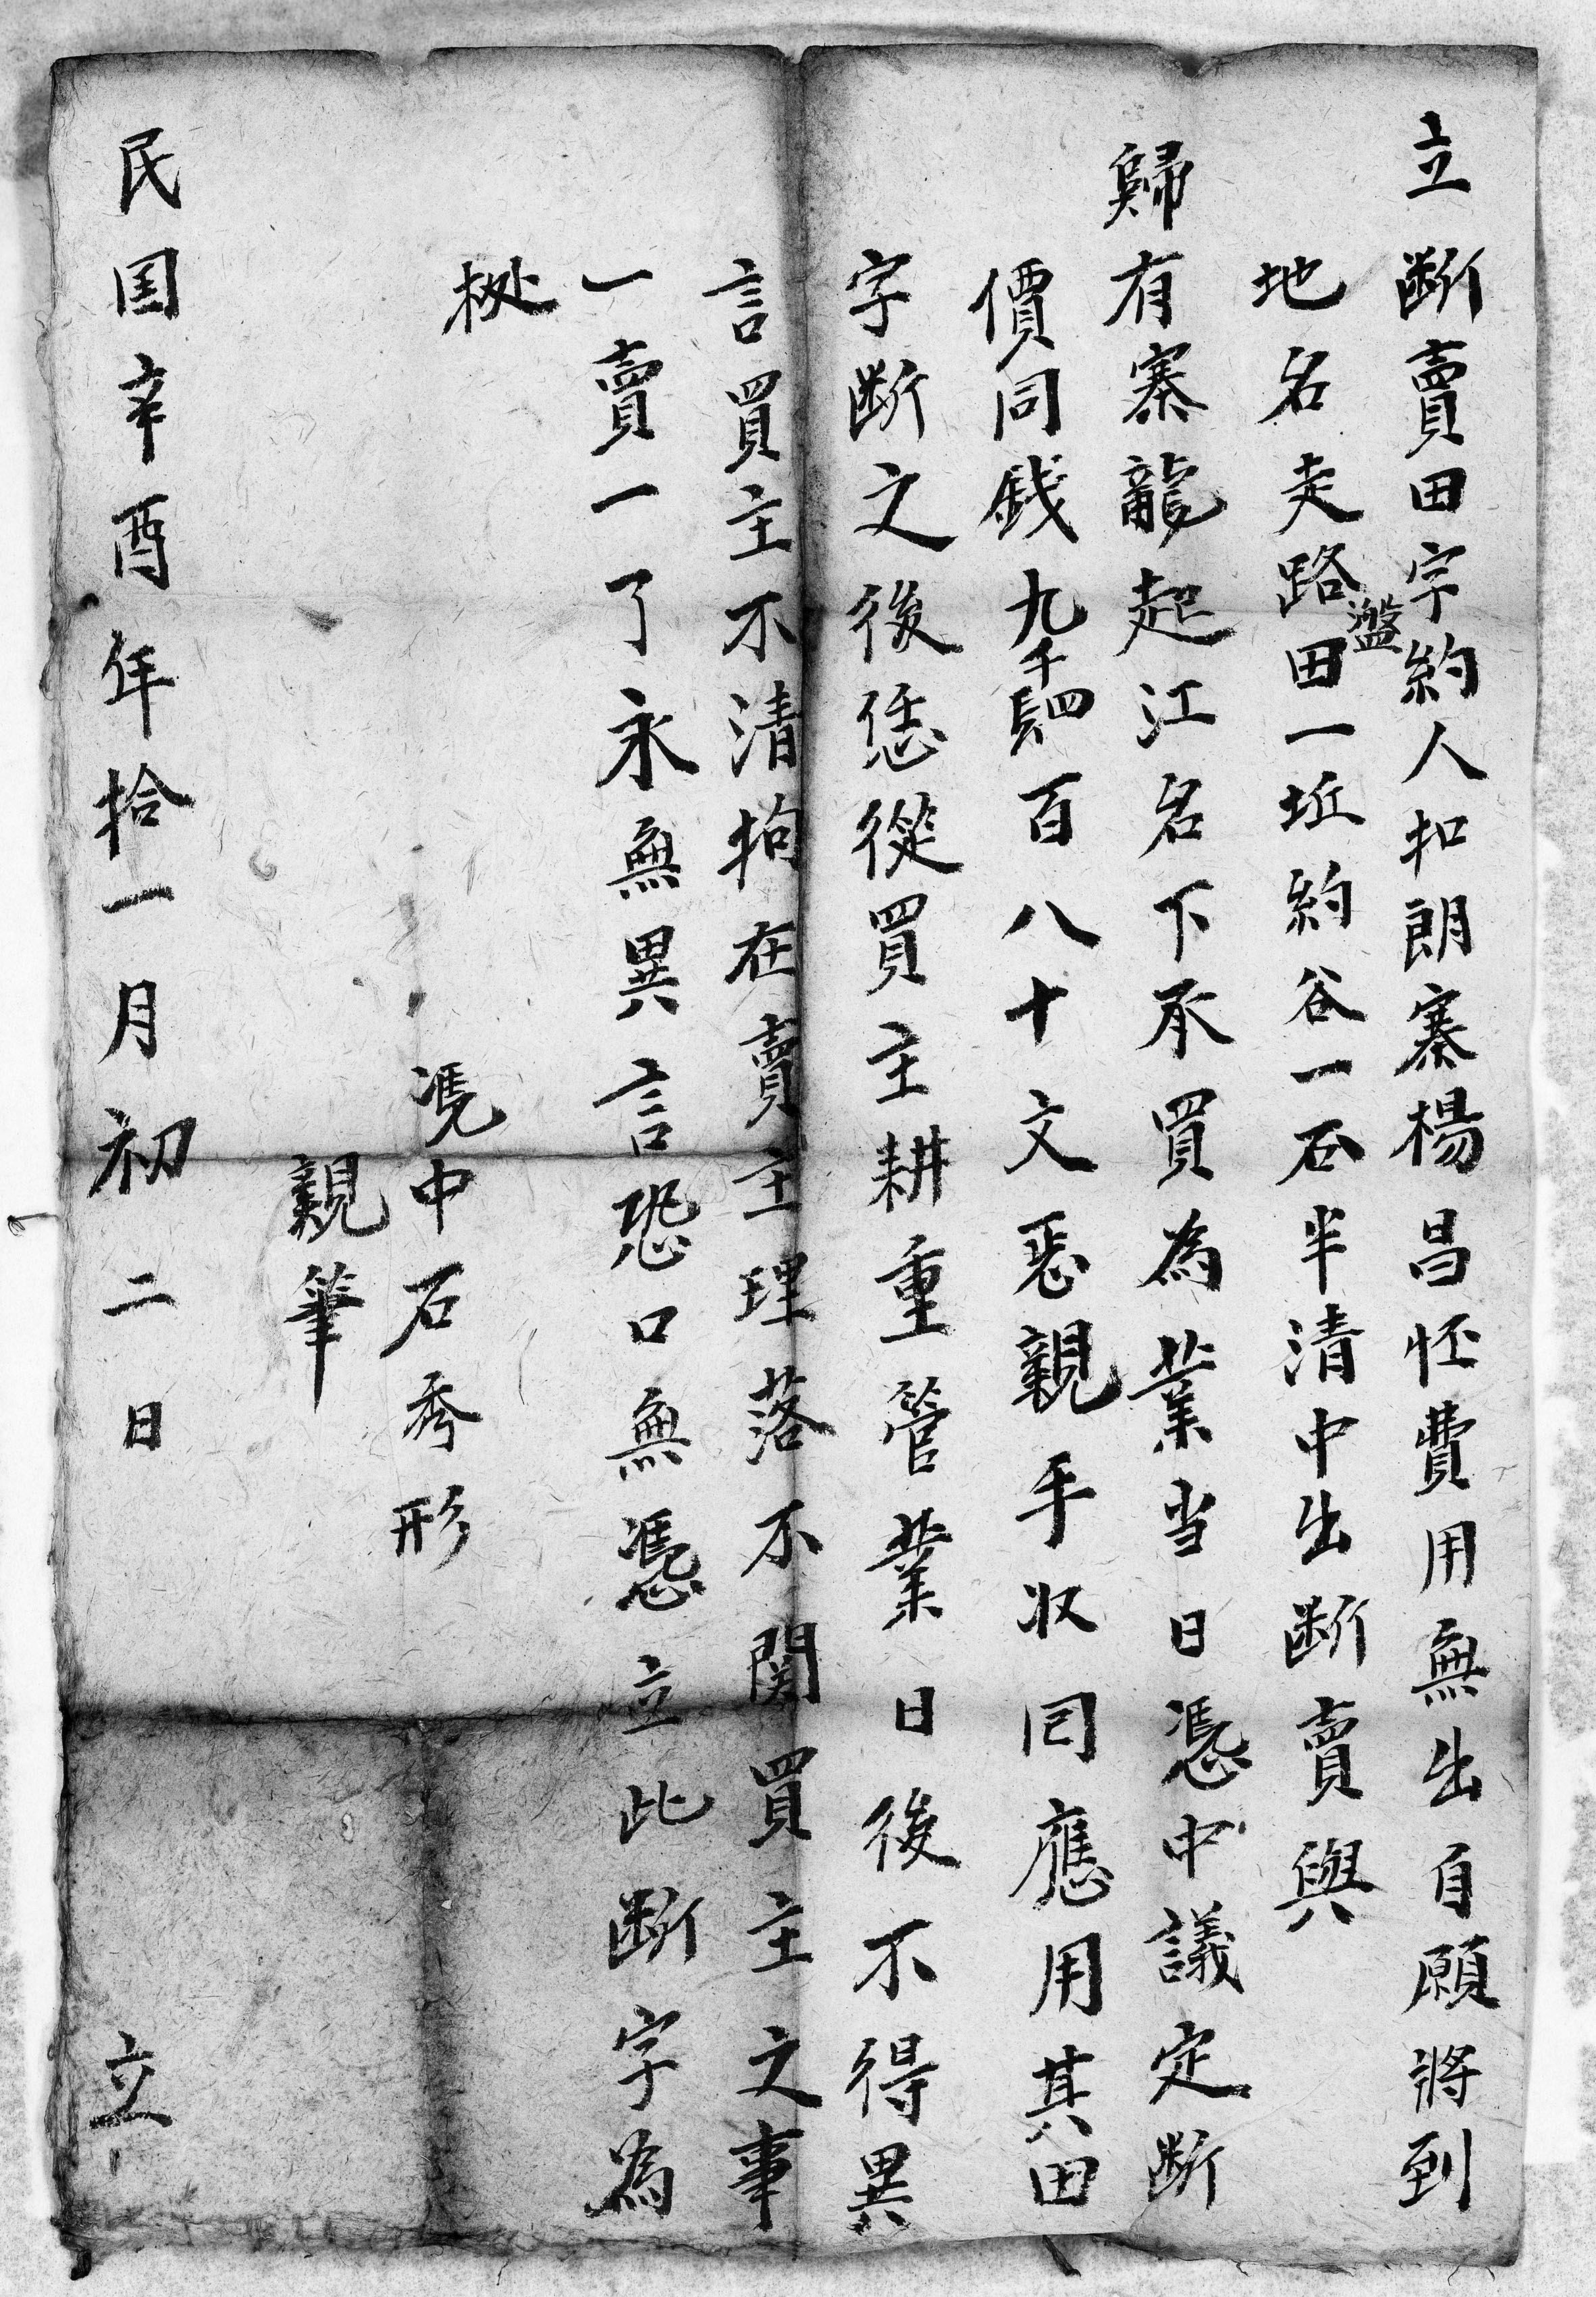 立斷賣田字約人扣朗寨楊昌怌費用無出自願將到
地名走路盤田一坵約谷一石半清中出断賣與
歸有寨龍起江名下承買為業当日憑中議定断
價同銭九千四百八十文恶親手收囘應用其田
字断之後恁從買主耕重管業日後不得異
言買主不清拘在賣主理落不関買主之事
一賣一了永無異言恐口無憑立此断字為
㨿
凴中石秀形
親筆
民国辛酉年拾一月初二日立